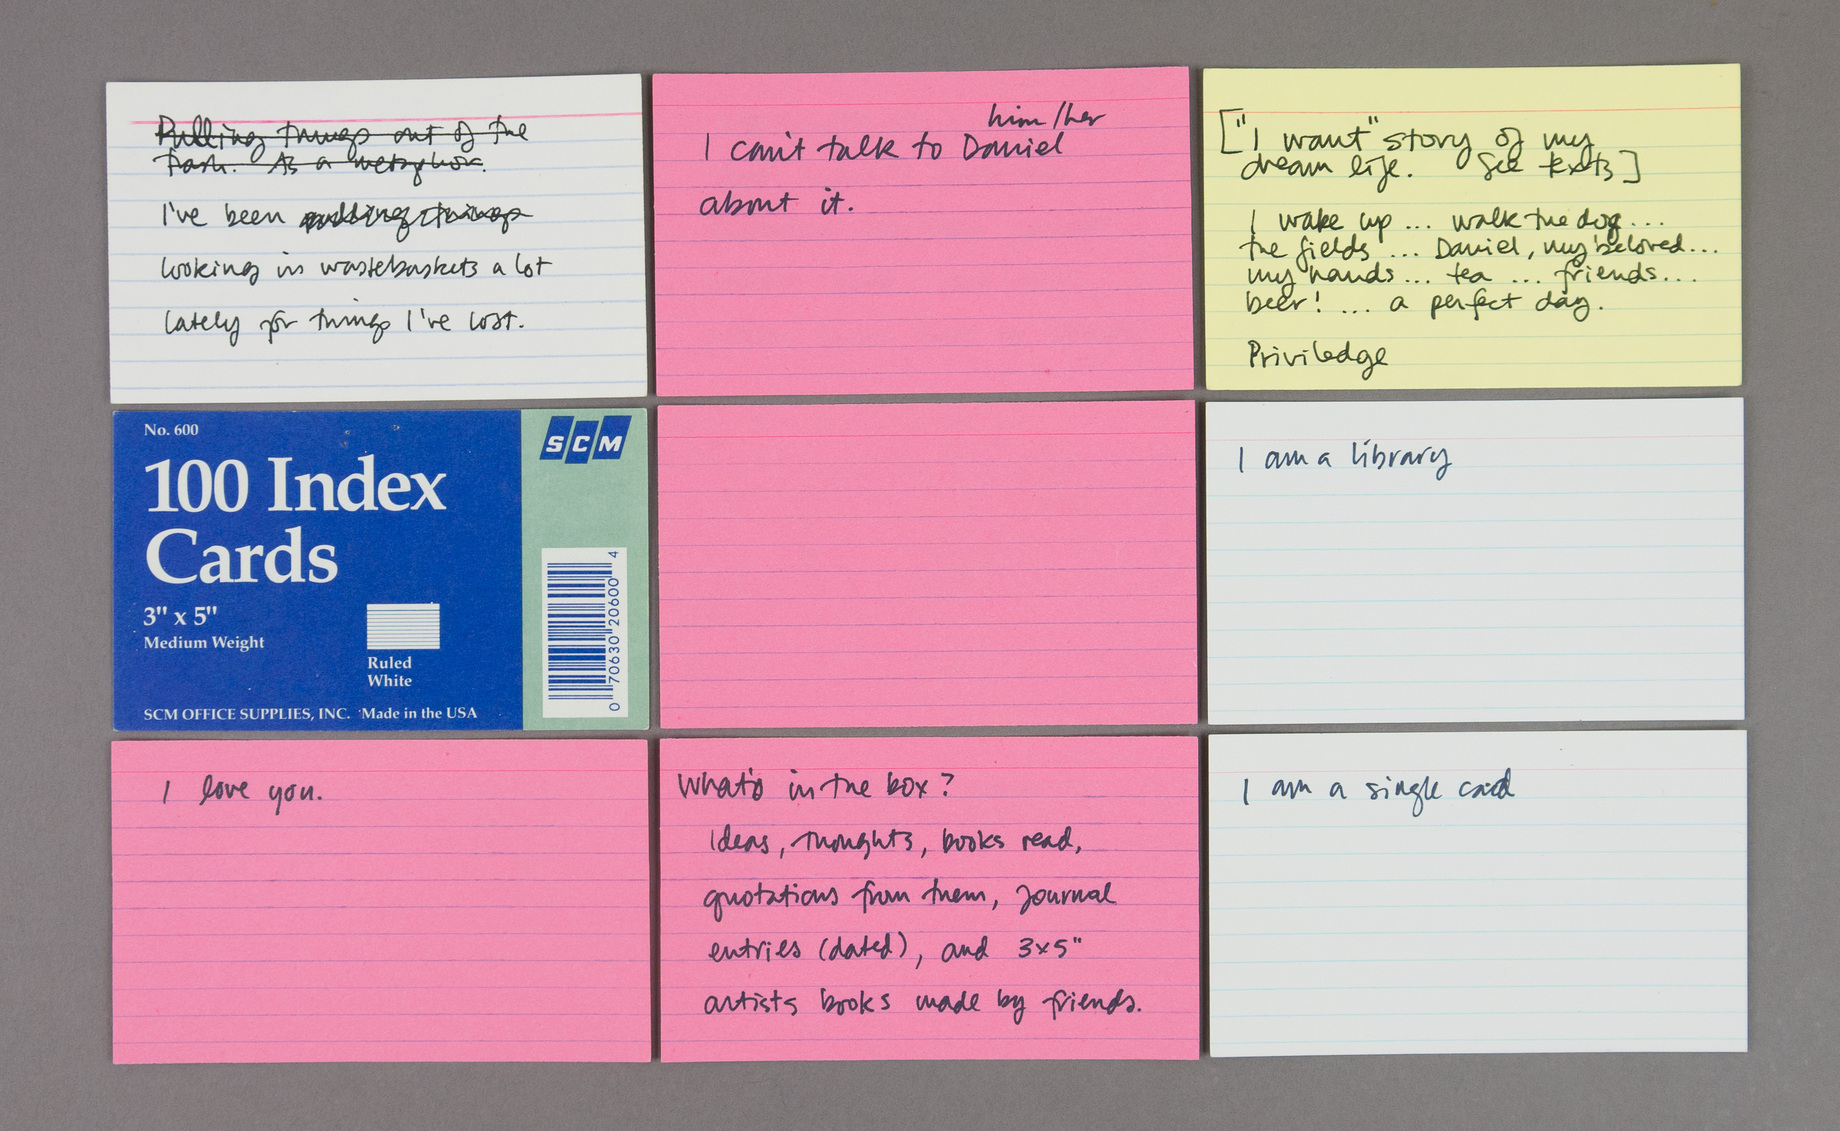 Pulling things out of the
trash. As a metaphor.
I've been pulling things
looking in wastebaskets a lot
lately for things I've lost.
him/her
I can't talk to Daniel
about it.
["I want" story of my
dream life. See texts]
I wake up ... walk the dog ...
the fields ... Daniel, my beloved ...
my hands ... tea ... friends ...
beer! ... a perfect day.
Priviledge
No. 600
100 Index
Cards
3" x 5"
Medium Weight
Ruled
White
SCM OFFICE SUPPLIES, INC. Made in the USA
SCM
0 70630 20600 4
I am a library
I love you.
What's in the box?
Ideas, thoughts, books read,
quotations from them, journal
entries (dated), and 3x5"
artists books made by friends.
I am a single card